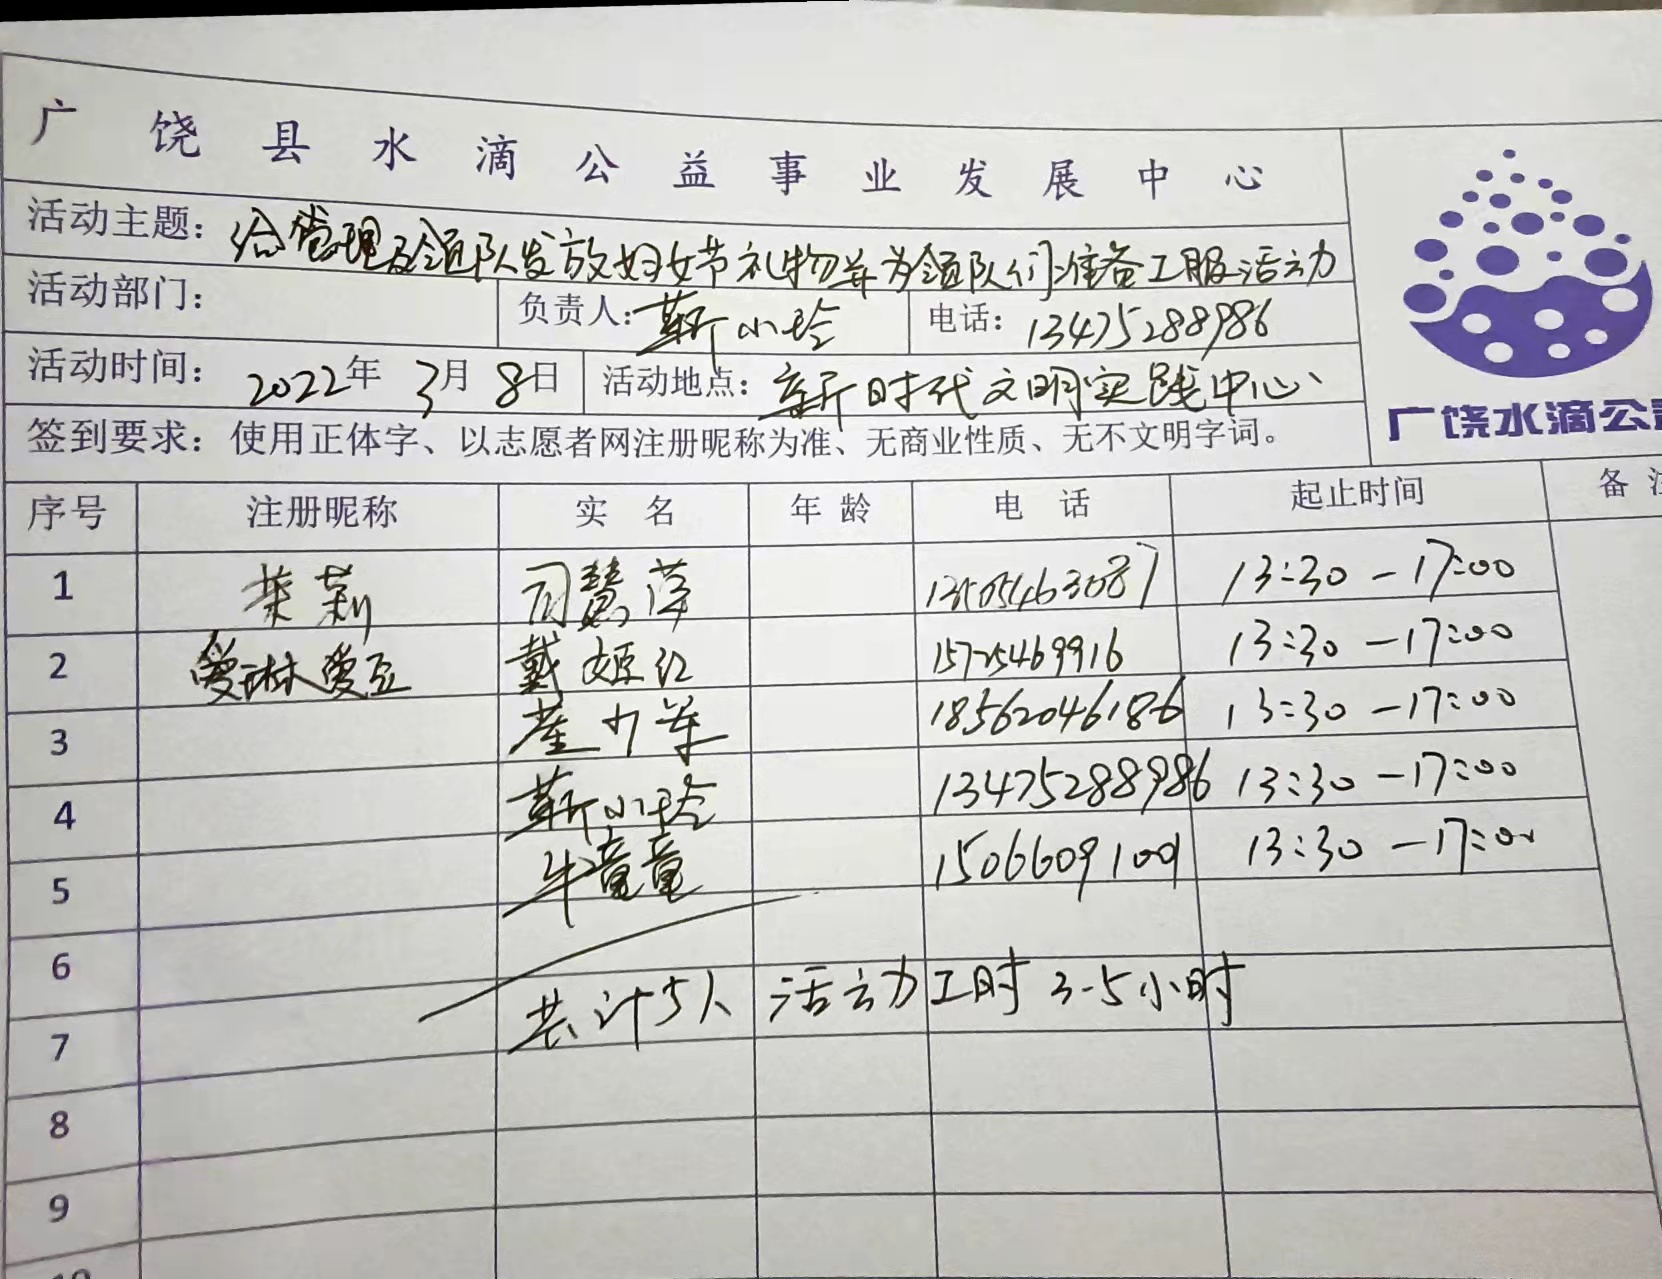 广饶县水滴公益事业发展中心
活动主题：给管理及领队发放妇女节礼物并为领队们准备工服活动
活动部门： 负责人：靳小玲 电话：13475288986
活动时间：2022年3月8日 活动地点：新时代文明实践中心
签到要求：使用正体字、以志愿者网注册昵称为准、无商业性质、无不文明字词。
广饶水滴公
序号 注册昵称 实名 年龄 电话 起止时间 备
1 茉莉 司慧萍 13505463087 13:30-17:00
2 爱琳爱豆 戴姬红 15725469916 13:30-17:00
3 18562046186 13:30-17:00
4 靳小玲 13475288986 13:30-17:00
5 牛童童 15066091001 13:30-17:00
6
共计5人 活动工时 3.5小时
7
8
9
10